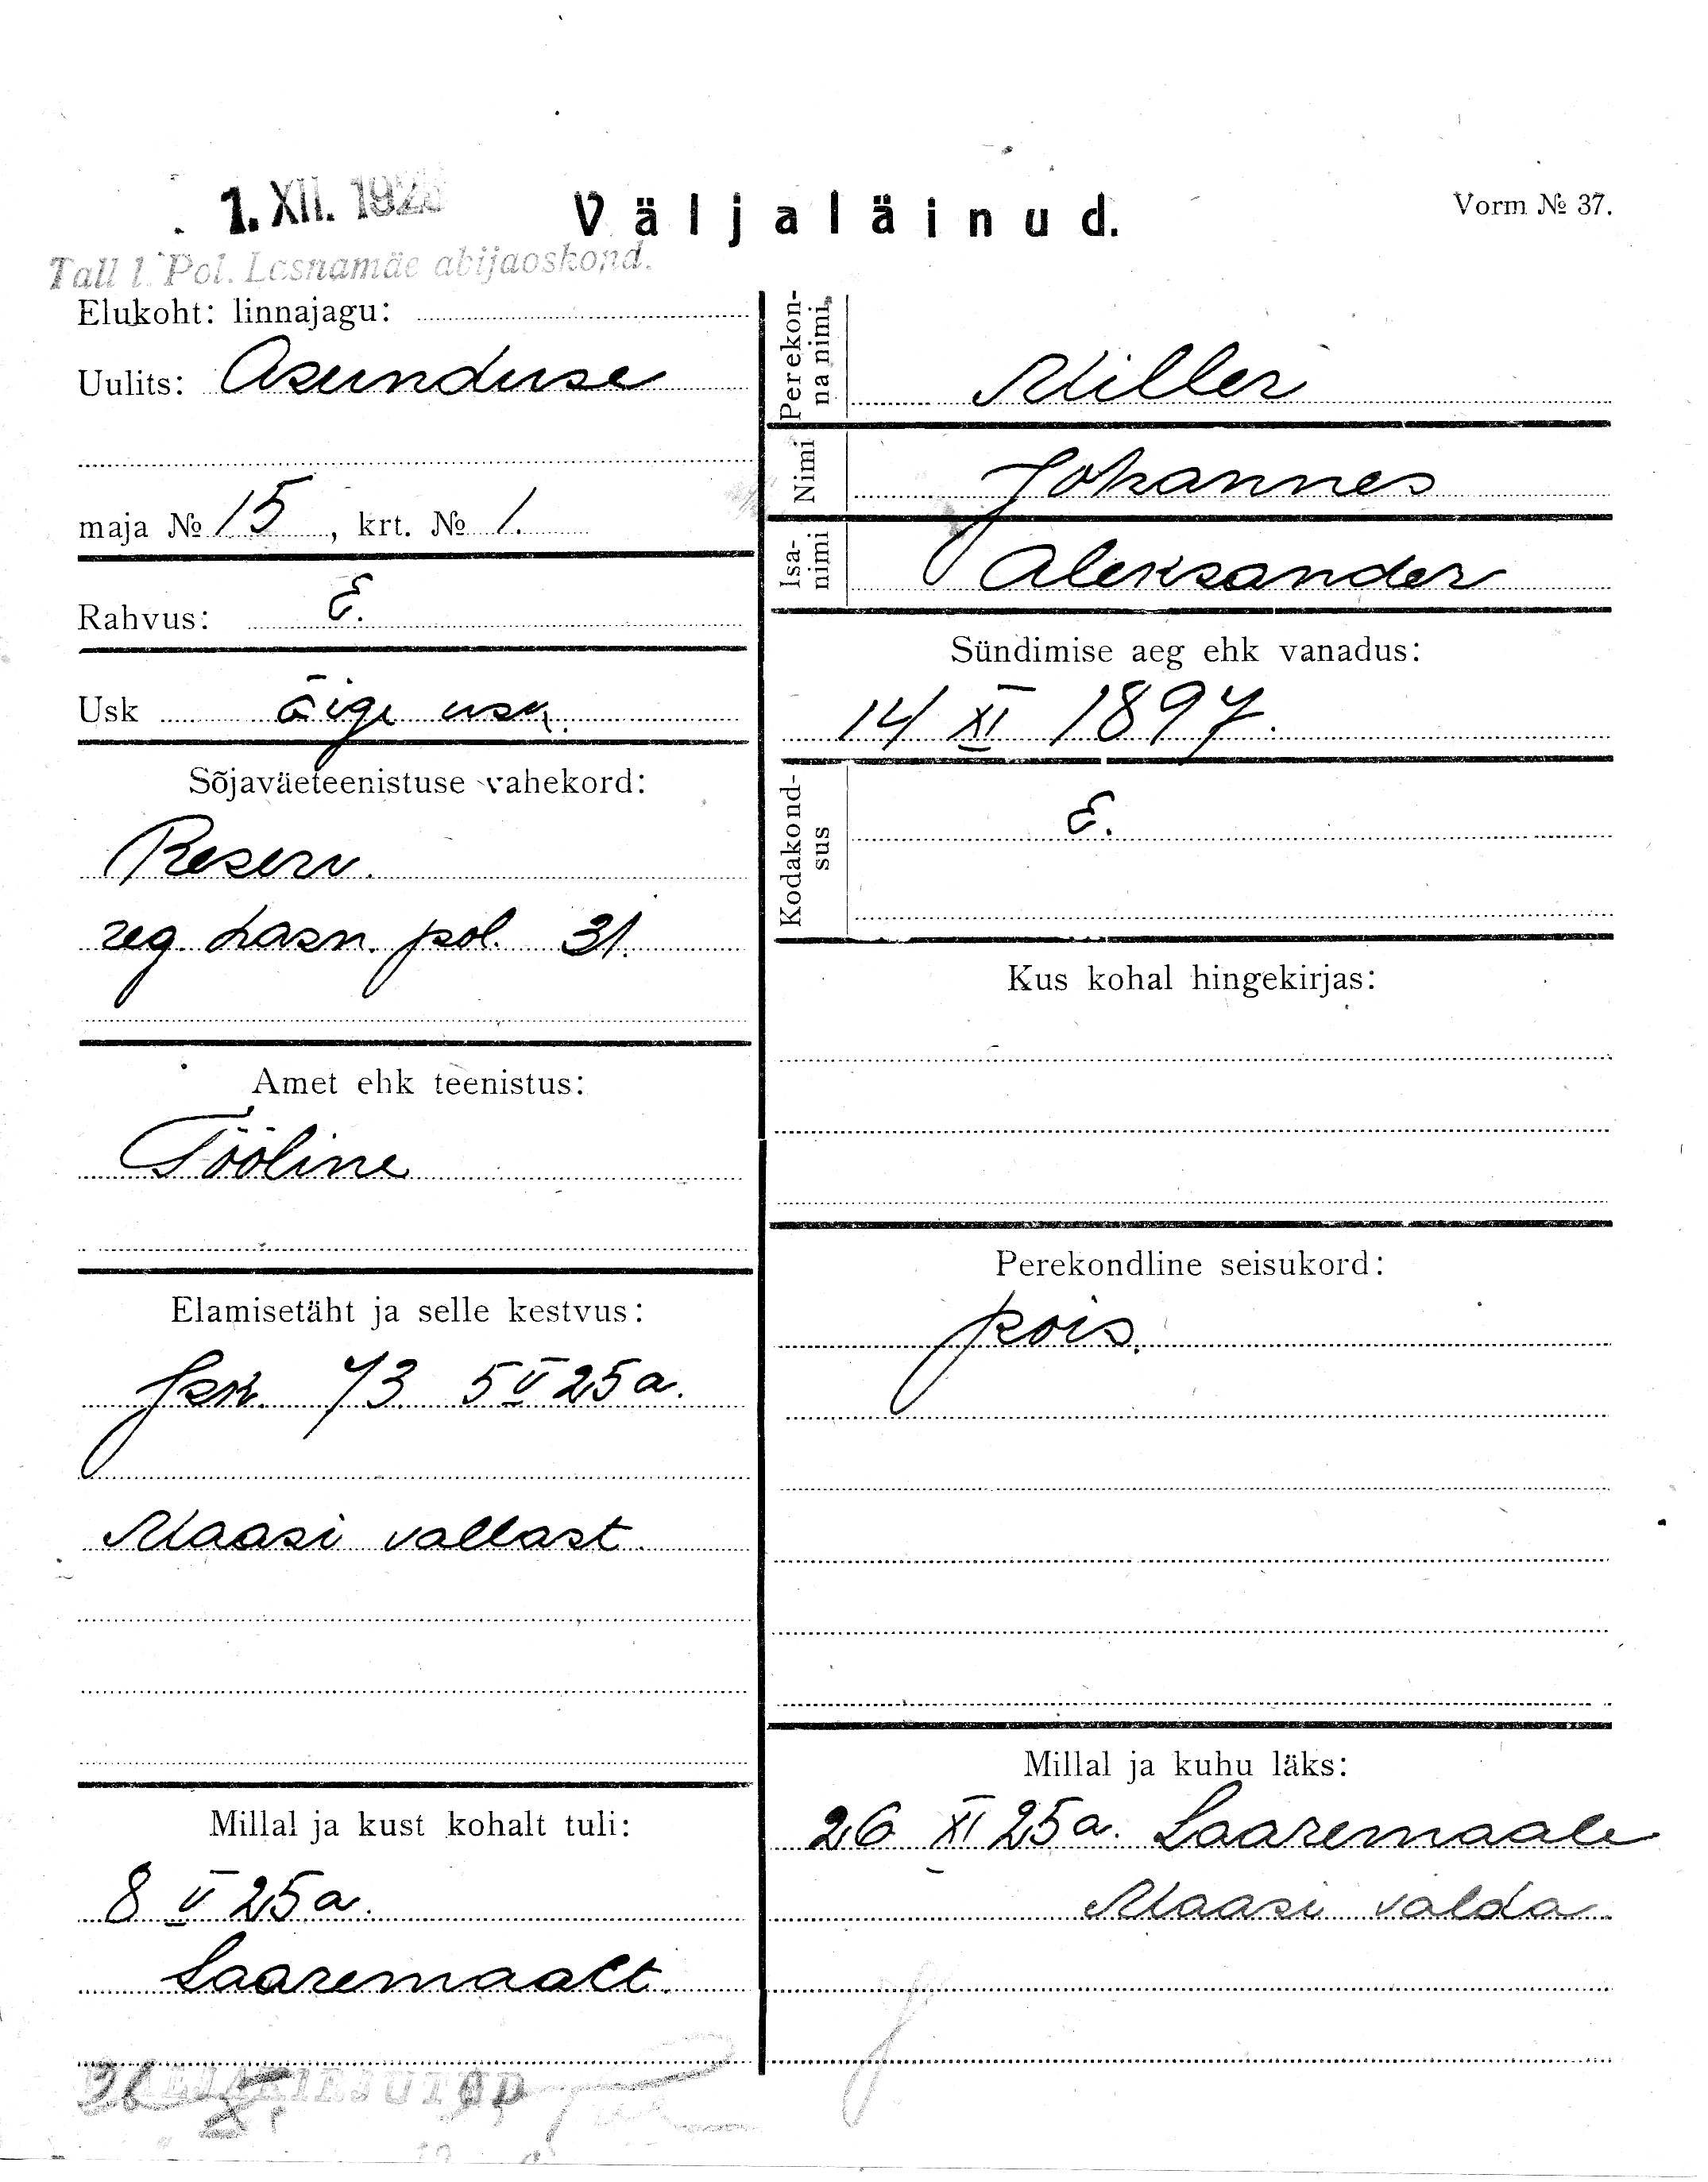 1. XII. 1925
Väljaläinud.
Vorm № 37.
Tall 1. Pol. Lasnamäe abijaoskond.
Elukoht: linnajagu:
Uulits: Asunduse
maja № 15, krt. № 1.
Rahvus: E.
Usk õige usk.
Sõjaväeteenistuse vahekord:
Reserv.
reg. Lasn. pol. 31.
Amet ehk teenistus:
Tööline
Elamisetäht ja selle kestvus:
73 5 V 25 a.
Maasi vallast.
Millal ja kust kohalt tuli:
8 V 25 a.
Saaremaalt.
Perekonna nimi
Miller
Nimi
Johannes
Isanimi
Aleksander
Sündimise aeg ehk vanadus:
14 XI 1897.
Kodakondsus
E.
Kus kohal hingekirjas:
Perekondline seisukord:
pois.
Millal ja kuhu läks:
26 XI 25 a. Saaremaale
Maasi valda.